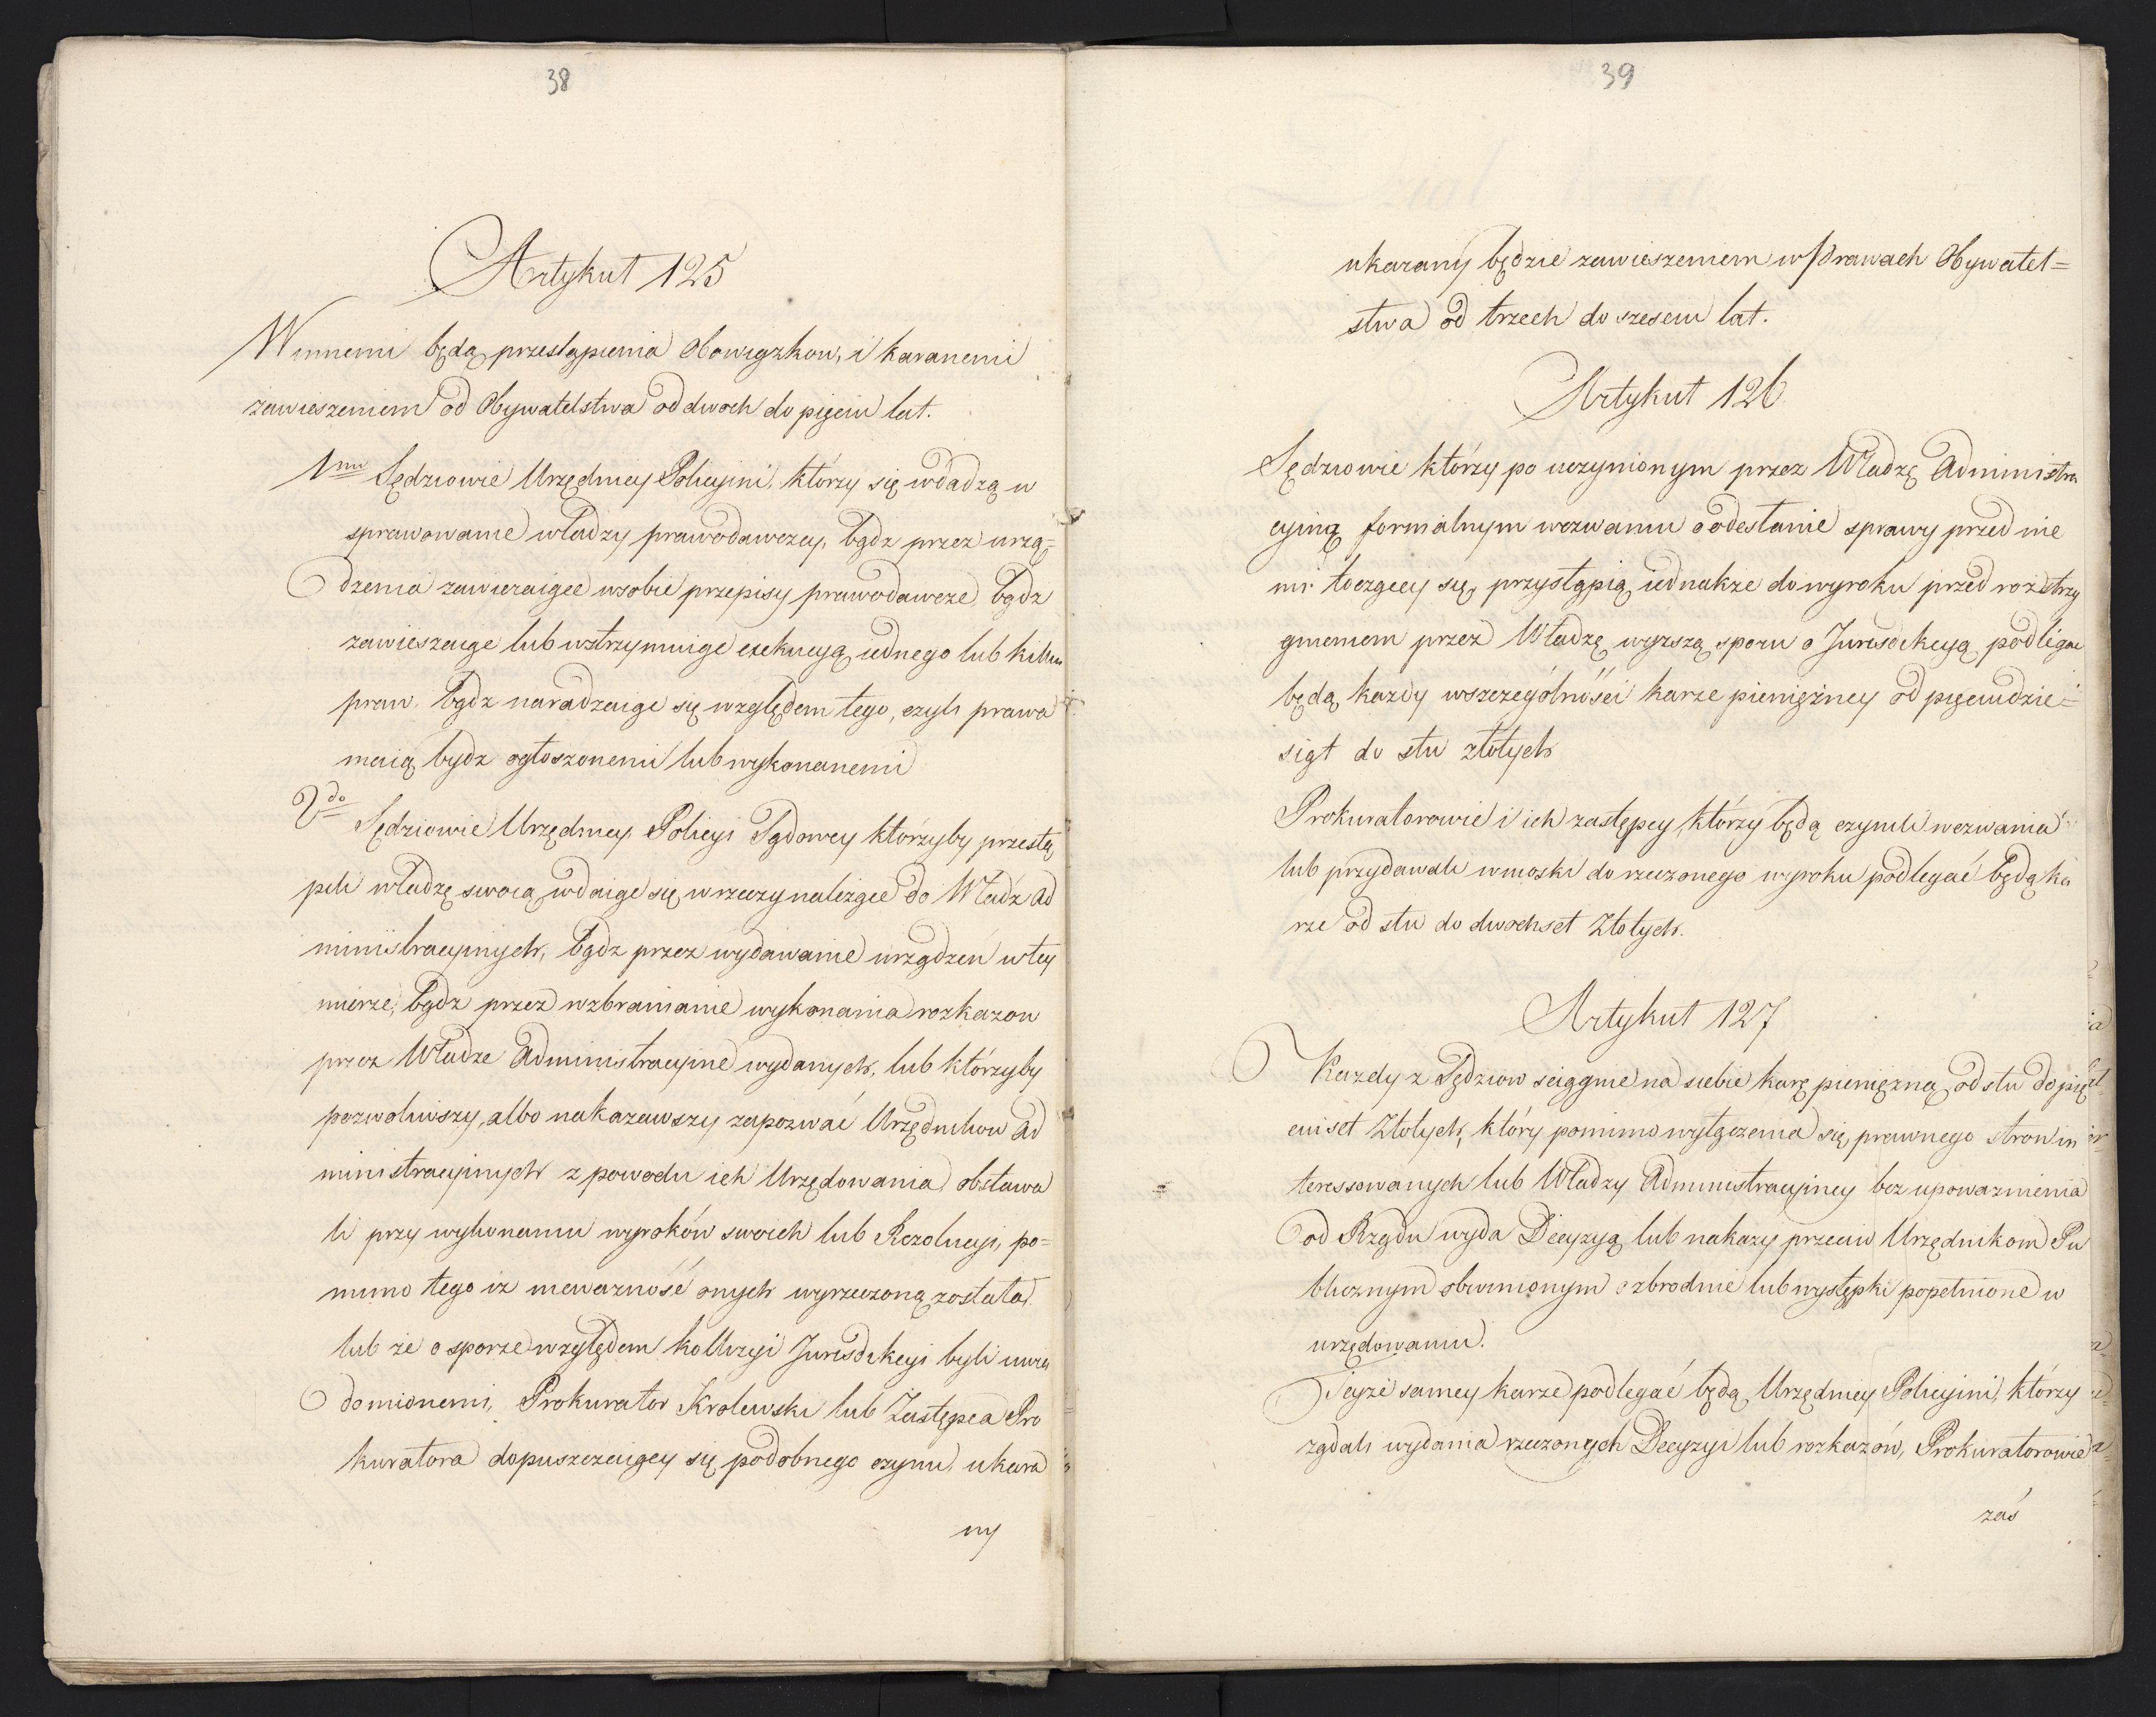 38
Artykuł 125
Winnemi będą przestąpienia Obowiązkow, i karanemi
zawieszeniem od Obywatelstwa od dwoch do pięciu lat.
1mo Sędziowie Urzędnicy Policyini, którzy się wdadzą w
sprawowanie władzy prawodawczey, bądz przez urzą=
dzenia zawieraiące w sobie przepisy prawodawcze, bądz
zawieszaiąc lub wstrzymuiąc exekucyą iednego lub kilku
praw, bądz naradzaiąc się względem tego, czyli prawa
maią bydz ogłoszonemi lub wykonanemi
2do Sędziowie Urzędnicy Policyi Sądowey którzyby przestą
pili władzę swoią wdaiąc się w rzeczy należące do Władz Ad
ministracyinych, bądz przez wydawanie urządzeń w tey
mierze, bądz przez wzbranianie wykonania rozkazow
przez Władze Administracyine wydanych, lub którzyby
pozwoliwszy, albo nakazawszy zapozwać Urzędników Ad
ministracyinych z powodu ich Urzędowania, obstawa
li przy wykonaniu wyroków swoich lub Rezolucyi, po=
mimo tego iż nieważność onych wyrzeczoną została,
lub że o sporze względem kollizyi Jurisdikcyi byli uwia
domionemi, Prokurator Krolewski lub Zastępca Pro
kuratora dopuszczaiący się podobnego czynu, ukara
ny
39
ukarany będzie zawieszeniem w Prawach Obywatel=
stwa od trzech do sześciu lat.
Artykuł 126
Sędziowie którzy po uczynionym przez Władzę Administra
cyiną formalnym wezwaniu o odesłanie sprawy przed nie
mi toczącey się, przystąpią iednakże do wyroku przed rozstrzy
gnieniem przez Władzę wyższą sporu o Jurisdikcyą podlegac
będą każdy w szczególności karze pieniężney od pięciudzie=
siąt do stu złotych
Prokuratorowie i ich zastępcy, którzy będą czynili wezwania
lub przydawali wnioski do rzeczonego wyroku podlegać będą ka
rze od stu do dwochset Złotych.
Artykuł 127
Kazdy z Sędziow sciągnie na siebie karę pieniężną od stu do pię
ciuset Złotych, który pomimo wyłączenia się prawnego stron in
teressowanych lub Władzy Administracyiney bez upoważnienia
od Rządu wyda Decyzyą lub nakazy przeciw Urzędnikom Pu
blicznym obwinionym o zbrodnie lub występki popełnione w
urzędowaniu.
Teyże samey karze podlegać będą Urzędnicy Policyini, którzy
ządali wydania rzeczonych Decyzyi lub rozkazów, Prokuratorowie
zaś